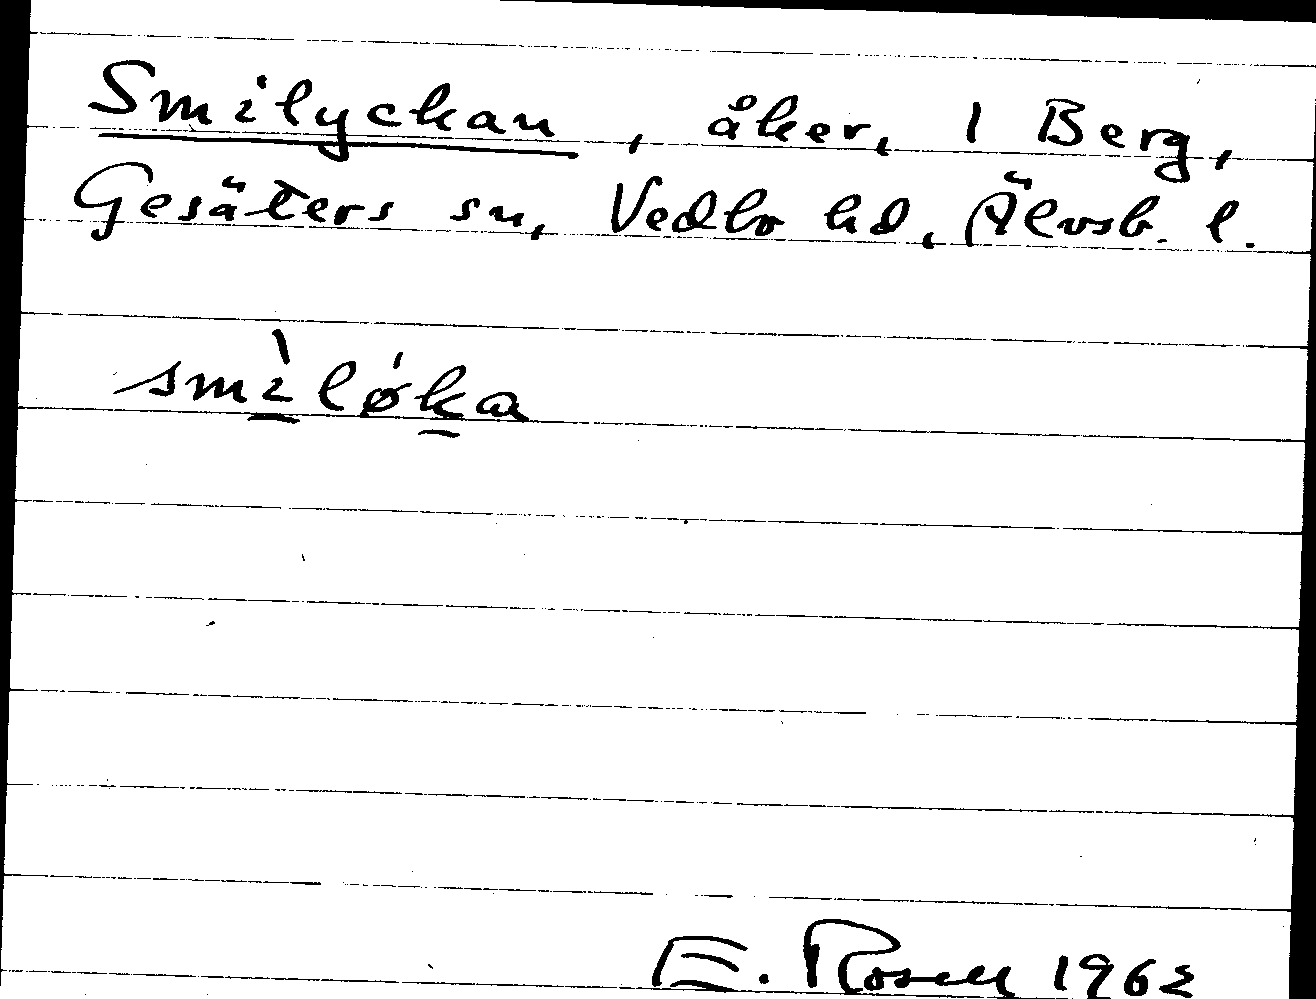 Smilyckan, åker, 1 Berg,
Gesäters sn, Vedbo hd, Älvsb. l.
smı̀lǿka
E. Rosell 1962